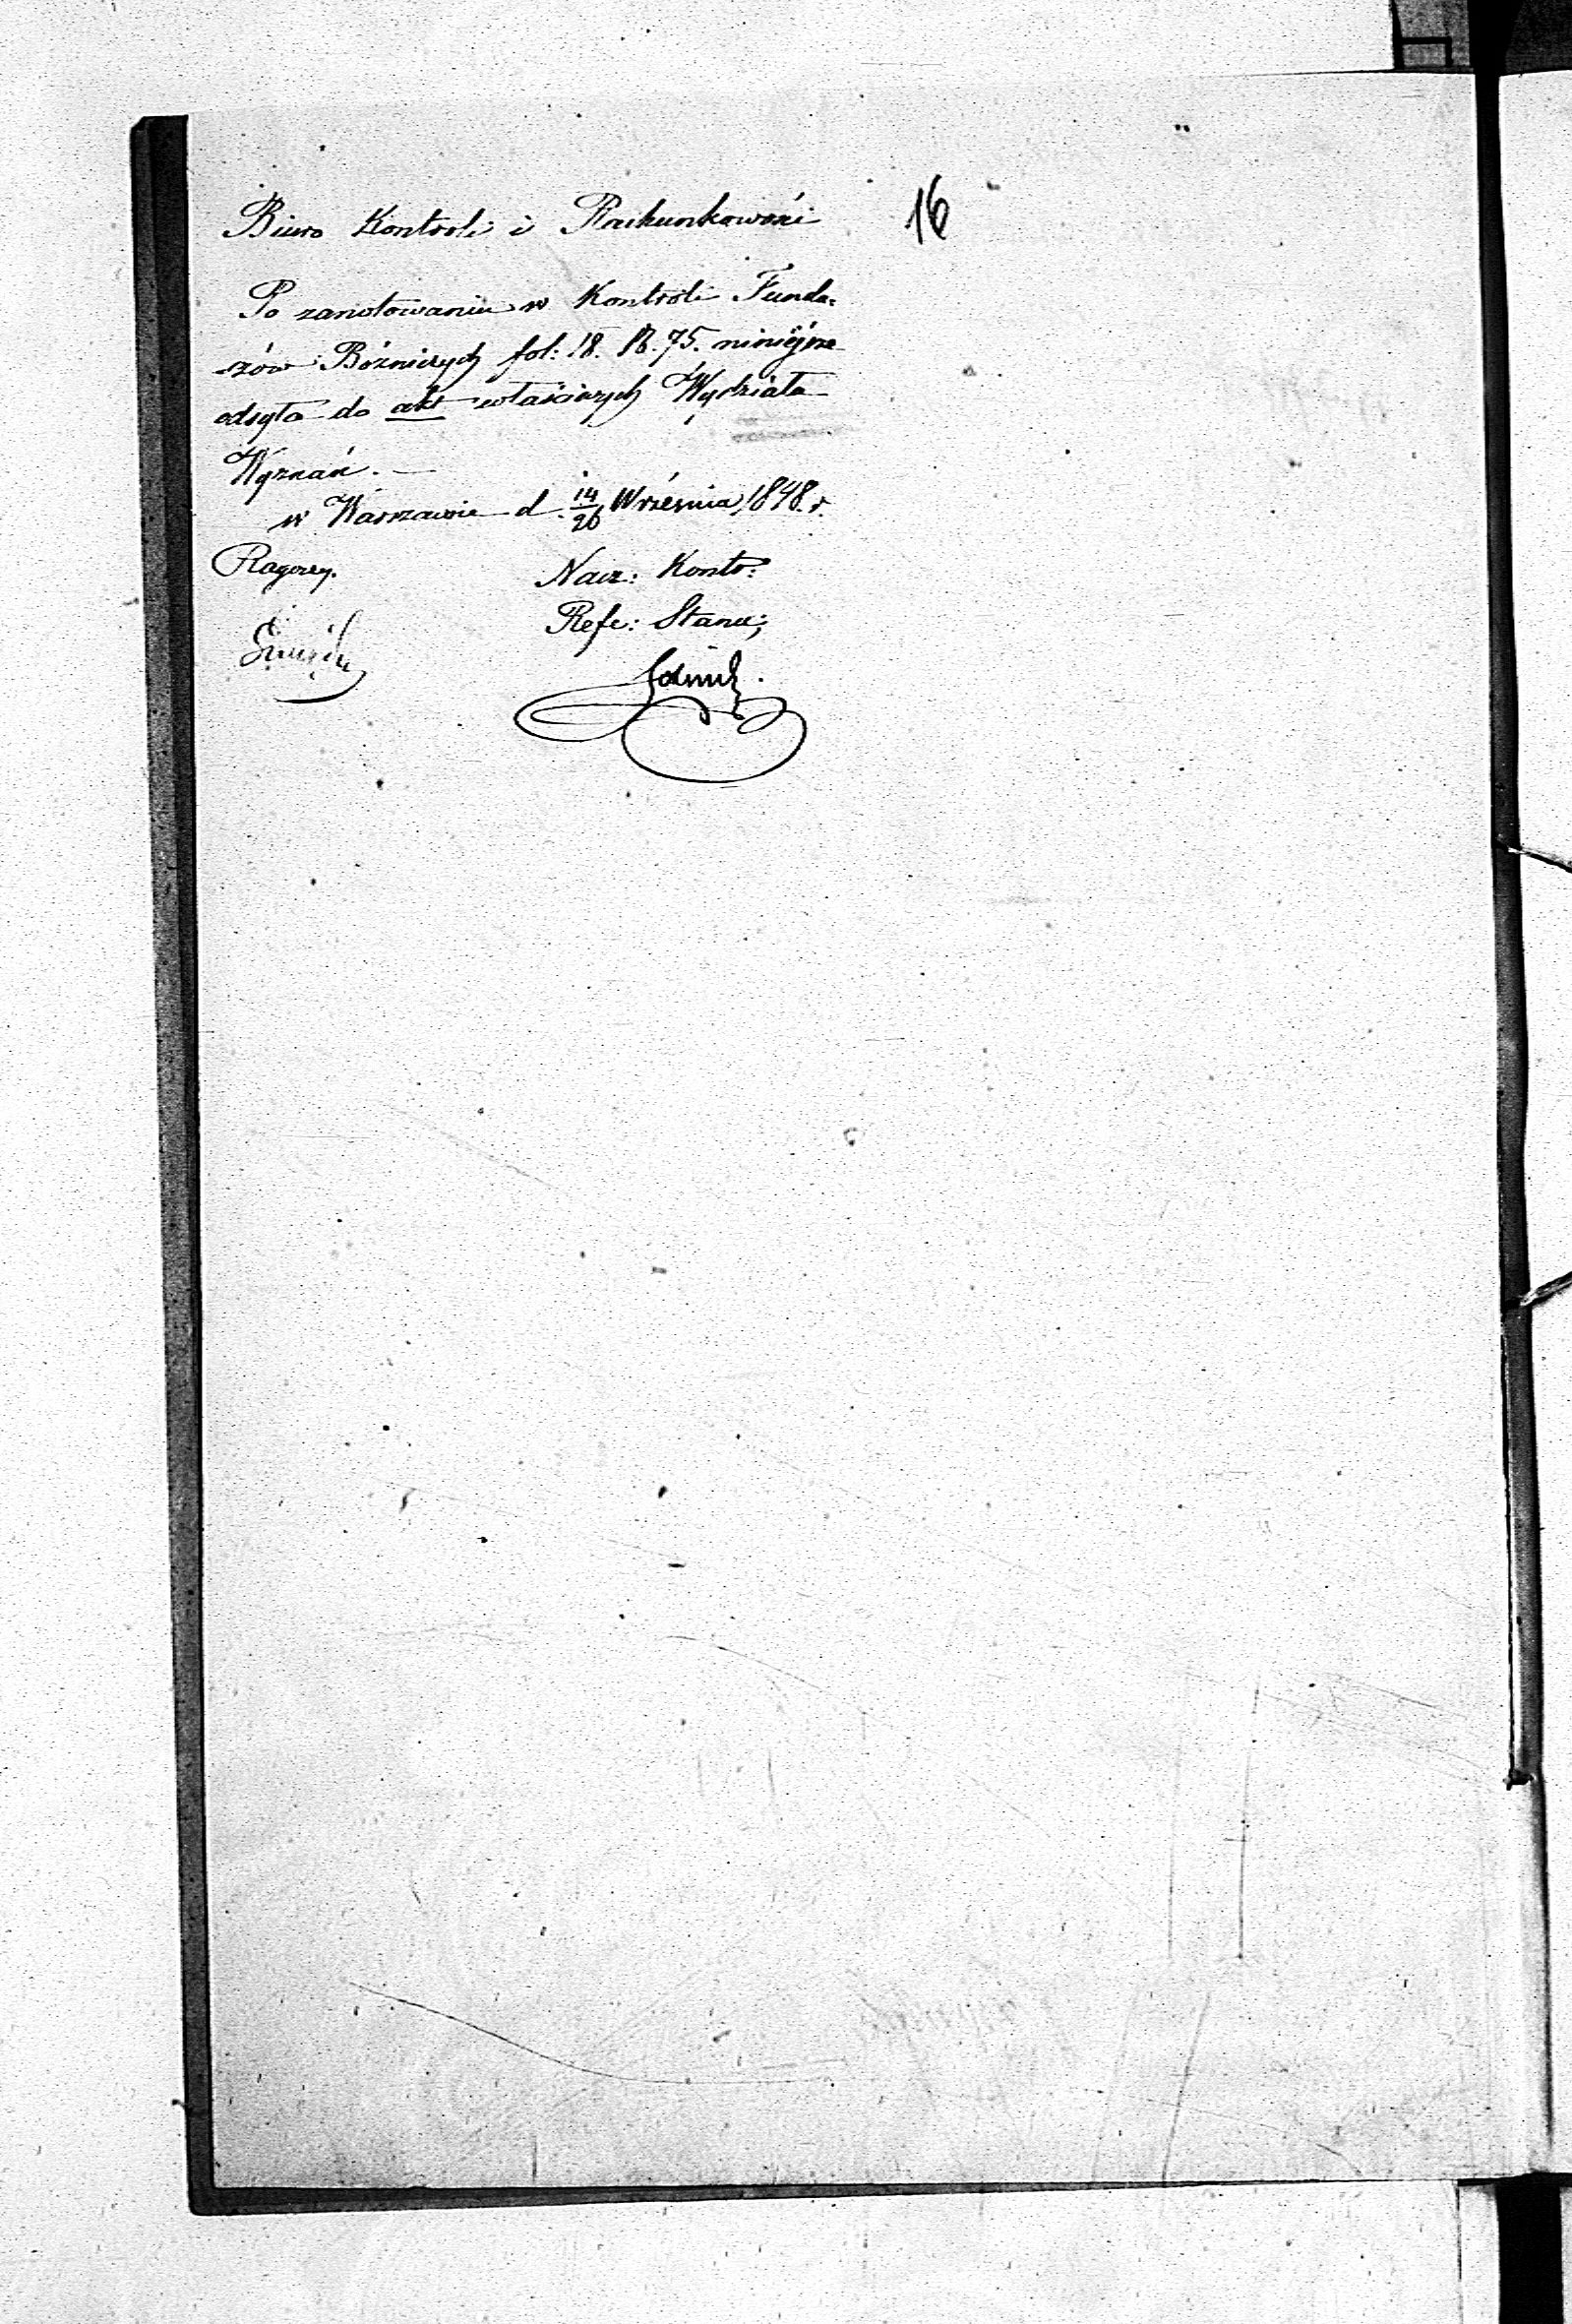 16
Biuro Kontroli i Rachunkowości
Po zanotowaniu w Kontroli Fundu-
szów Bóżniczych fol: 18. № 75. niniejsze
odsyła do akt właściwych Wydziału
Wyznań. —
w Warszawie d. 14/26 Września 1848. r.
Nacz: Kontr:
Refe: Stanu;